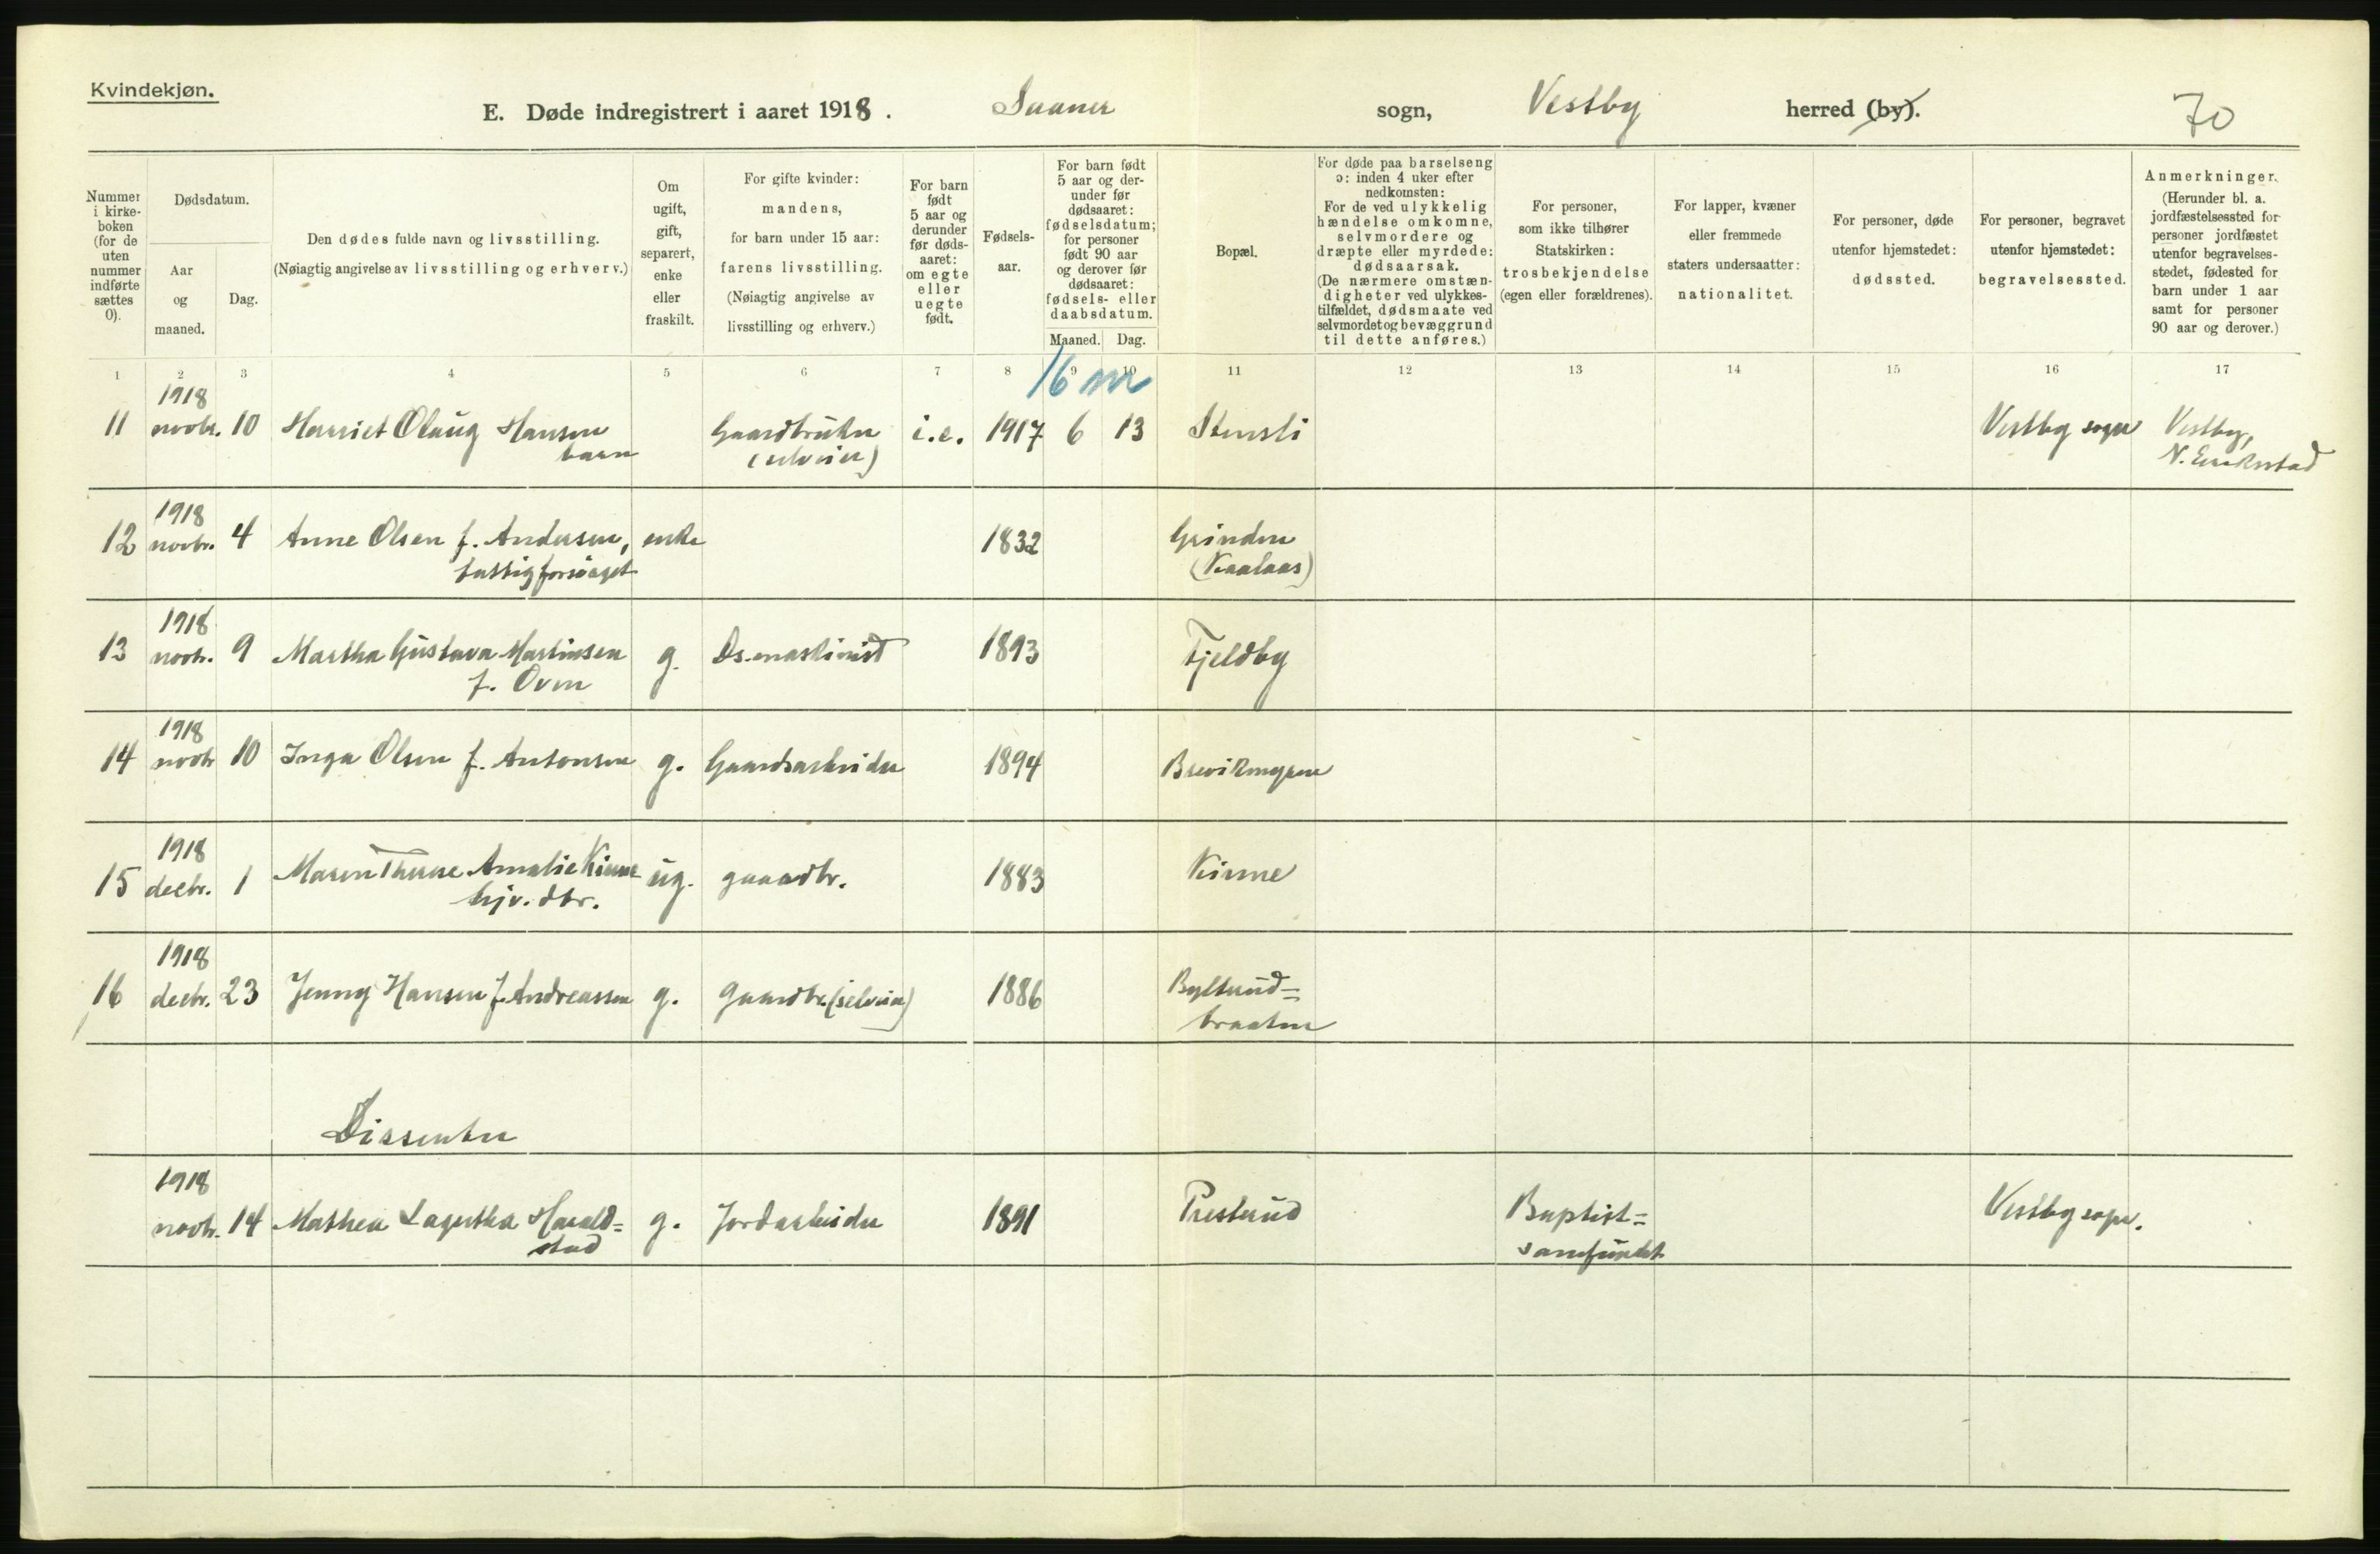 Kvindekjøn.
E. Døde indregistrert i aaret 1918. Saaner sogn, Vestby herred (by). 70
Nummer i kirkeboken (for de uten nummer indførte sættes 0).
Dødsdatum.
Aar og maaned.
Dag.
Den dødes fulde navn og livsstilling.
(Nøiagtig angivelse av livsstilling og erhverv.)
Om ugift, gift, separert, enke eller fraskilt.
For gifte kvinder: mandens, for barn under 15 aar: farens livsstilling. (Nøiagtig angivelse av livsstilling og erhverv.)
For barn født 5 aar og derunder før dødsaaret: om egte eller uegte født.
Fødselsaar.
For barn født 5 aar og derunder før dødsaaret: fødselsdatum; for personer født 90 aar og derover før dødsaaret: fødsels- eller daabsdatum.
Maaned. Dag.
Bopæl.
For døde paa barselseng ɔ: inden 4 uker efter nedkomsten: For de ved ulykkelig hændelse omkomne, selvmordere og dræpte eller myrdede: dødsaarsak. (De nærmere omstændigheter ved ulykkestilfældet, dødsmaate ved selvmordet og bevæggrund til dette anføres.)
For personer, som ikke tilhører Statskirken: trosbekjendelse (egen eller forældrenes).
For lapper, kvæner eller fremmede staters undersaatter: nationalitet.
For personer, døde utenfor hjemstedet: dødssted.
For personer, begravet utenfor hjemstedet: begravelsessted.
Anmerkninger. (Herunder bl. a. jordfæstelsessted for personer jordfæstet utenfor begravelsesstedet, fødested for barn under 1 aar samt for personer 90 aar og derover.)
1 2 3 4 5 6 7 8 9 10 11 12 13 14 15 16 17
16 m
1918
11 novbr. 10 Harriet Olaug Hansen Gaardbruker i.e. 1917 6 13 Stensli Vestby sogn Vestby,
barn (selveier) N. Erikstad
1918
12 novbr. 4 Anne Olsen f. Andersen, enke 1832 Grinden
fattigforsørget (Kaalaas)
1918
13 novb. 9 Martha Gustava Martinsen g. Ds.maskinist 1893 Fjeldby
f. Oven
1918
14 novbr 10 Inga Olsen f. Antonsen g. Gaardsarbeider 1894 Brevikmyren
1918
15 decbr. 1 Maren Therese Amalie Kinne ug. gaardbr. 1883 Kinne
hjv. dtr.
1918
16 decbr. 23 Jenny Hansen f. Andreassen g. gaardbr. (selveier) 1886 Bylterud=
braaten
Dissenter
1918
novb. 14 Mathea Lagertha Harald= g. Jordarbeider 1891 Presterud Baptist= Vestby sogn.
stad samfundet